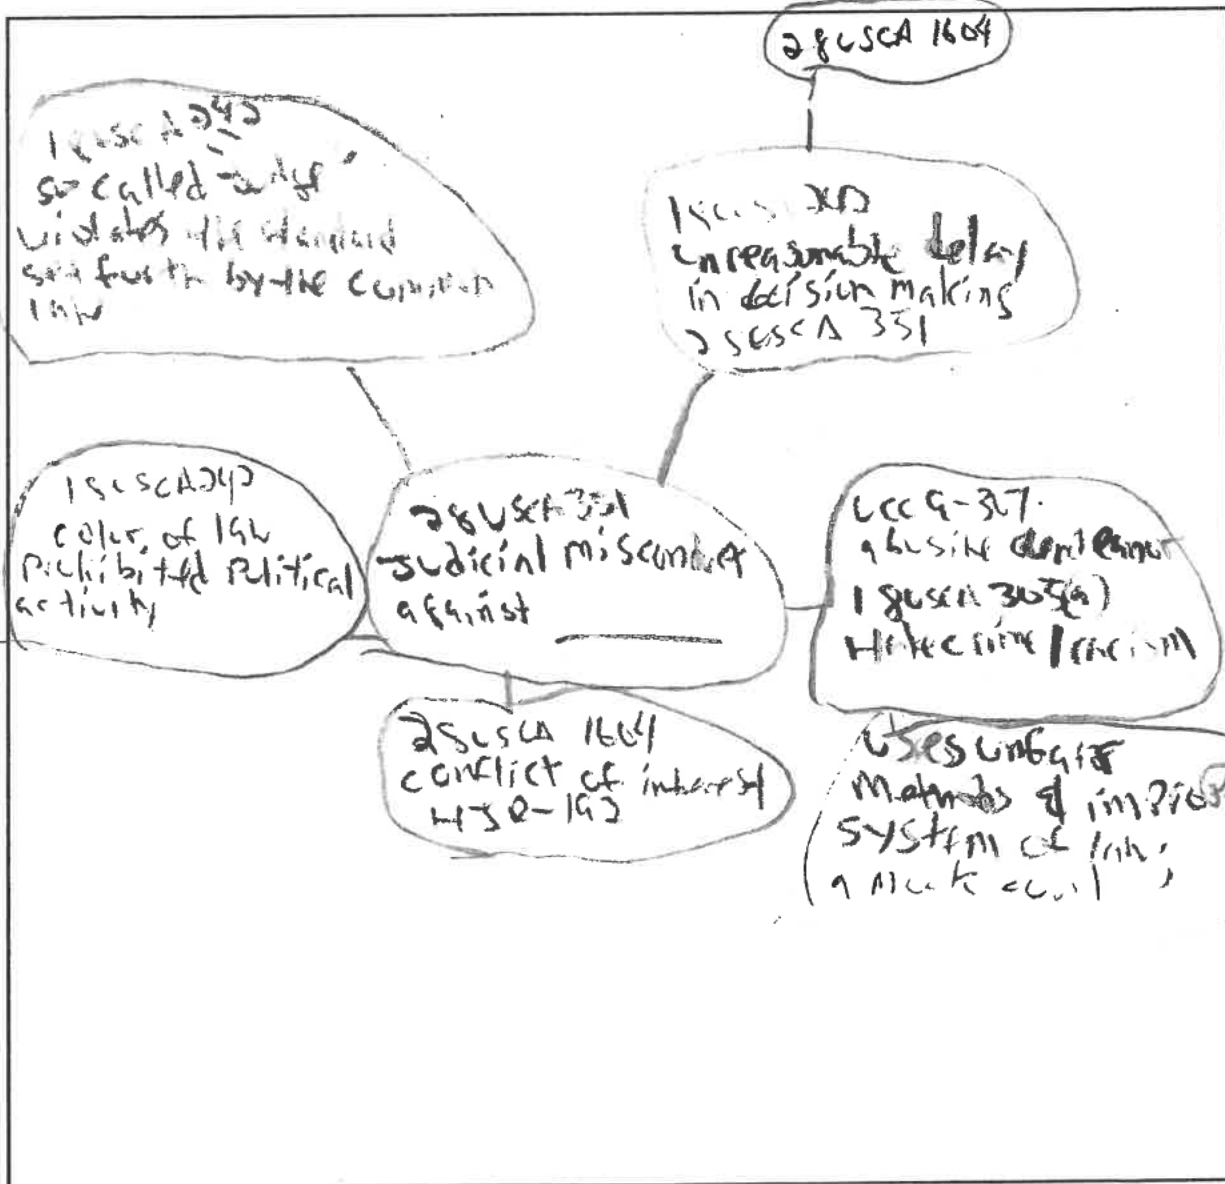 28 USCA 1604
18 USCA 242
so called "Judge"
violates the standard
set fourth by the common
law
unreasonable delay
in decision making
28 USCA 351
18 USCA 242
color of law
Prohibited Political
activity
28 USCA 351
Judicial misconduct
against
UCC 9-
abusive
18 USCA
Hate crime / racism
28 USCA 1604
conflict of interest
HJR-192
Uses unfair
Methods &
system of law,
a